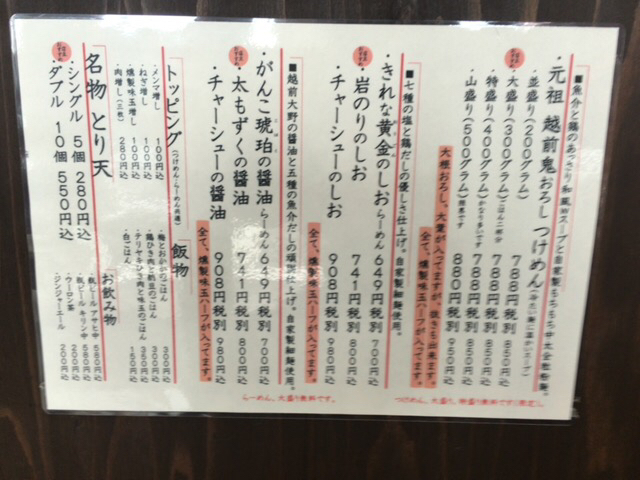 ■魚介と鶏のあっさり和風Wスープと自家製もちもち中太全粒粉麺。
・元祖 越前鬼おろし つけめん(冷たい麺に温かいスープ)
・並盛り(200グラム) 788円税別 850円込
・大盛り(300グラム)ごはん二杯分 788円税別 850円込
・特盛り(400グラム)かなり多いです 788円税別 850円込
・山盛り(500グラム)限界です 880円税別 950円込
大根おろし、大葉が入ってますが、抜きも出来ます。
全て、燻製味玉ハーフが入ってます。
■七種の塩と鶏だしの優しさ仕上げ。自家製細麺使用。
・きれな黄金のしお らーめん 649円税別 700円込
・岩のりのしお 741円税別 800円込
・チャーシューのしお 908円税別 980円込
全て、燻製味玉ハーフが入ってます。
■越前大野の醤油と五種の魚介だしの頑固仕上げ。自家製細麺使用。
・がんこ琥珀の醤油 らーめん 649円税別 700円込
・太もずくの醤油 741円税別 800円込
・チャーシューの醤油 908円税別 980円込
全て、燻製味玉ハーフが入ってます。
トッピング(つけめん・らーめん共通)
・メンマ増し 100円込
・ねぎ増し 100円込
・燻製味玉増し 100円込
・肉増し(三枚) 280円込
飯物
・梅とおかかのごはん 300円込
・鶏ひき肉と納豆のごはん 350円込
・テリヤキひき肉と味玉のごはん 350円込
・白ごはん 150円込
名物 とり天
・シングル 5個 280円込
・ダブル 10個 550円込
お飲み物
・瓶ビール アサヒ中 580円込
・瓶ビール キリン中 580円込
・ウーロン茶 200円込
・ジンジャーエール 200円込
つけめん、大盛り、特盛り無料です(限定)。
らーめん、大盛り無料です。